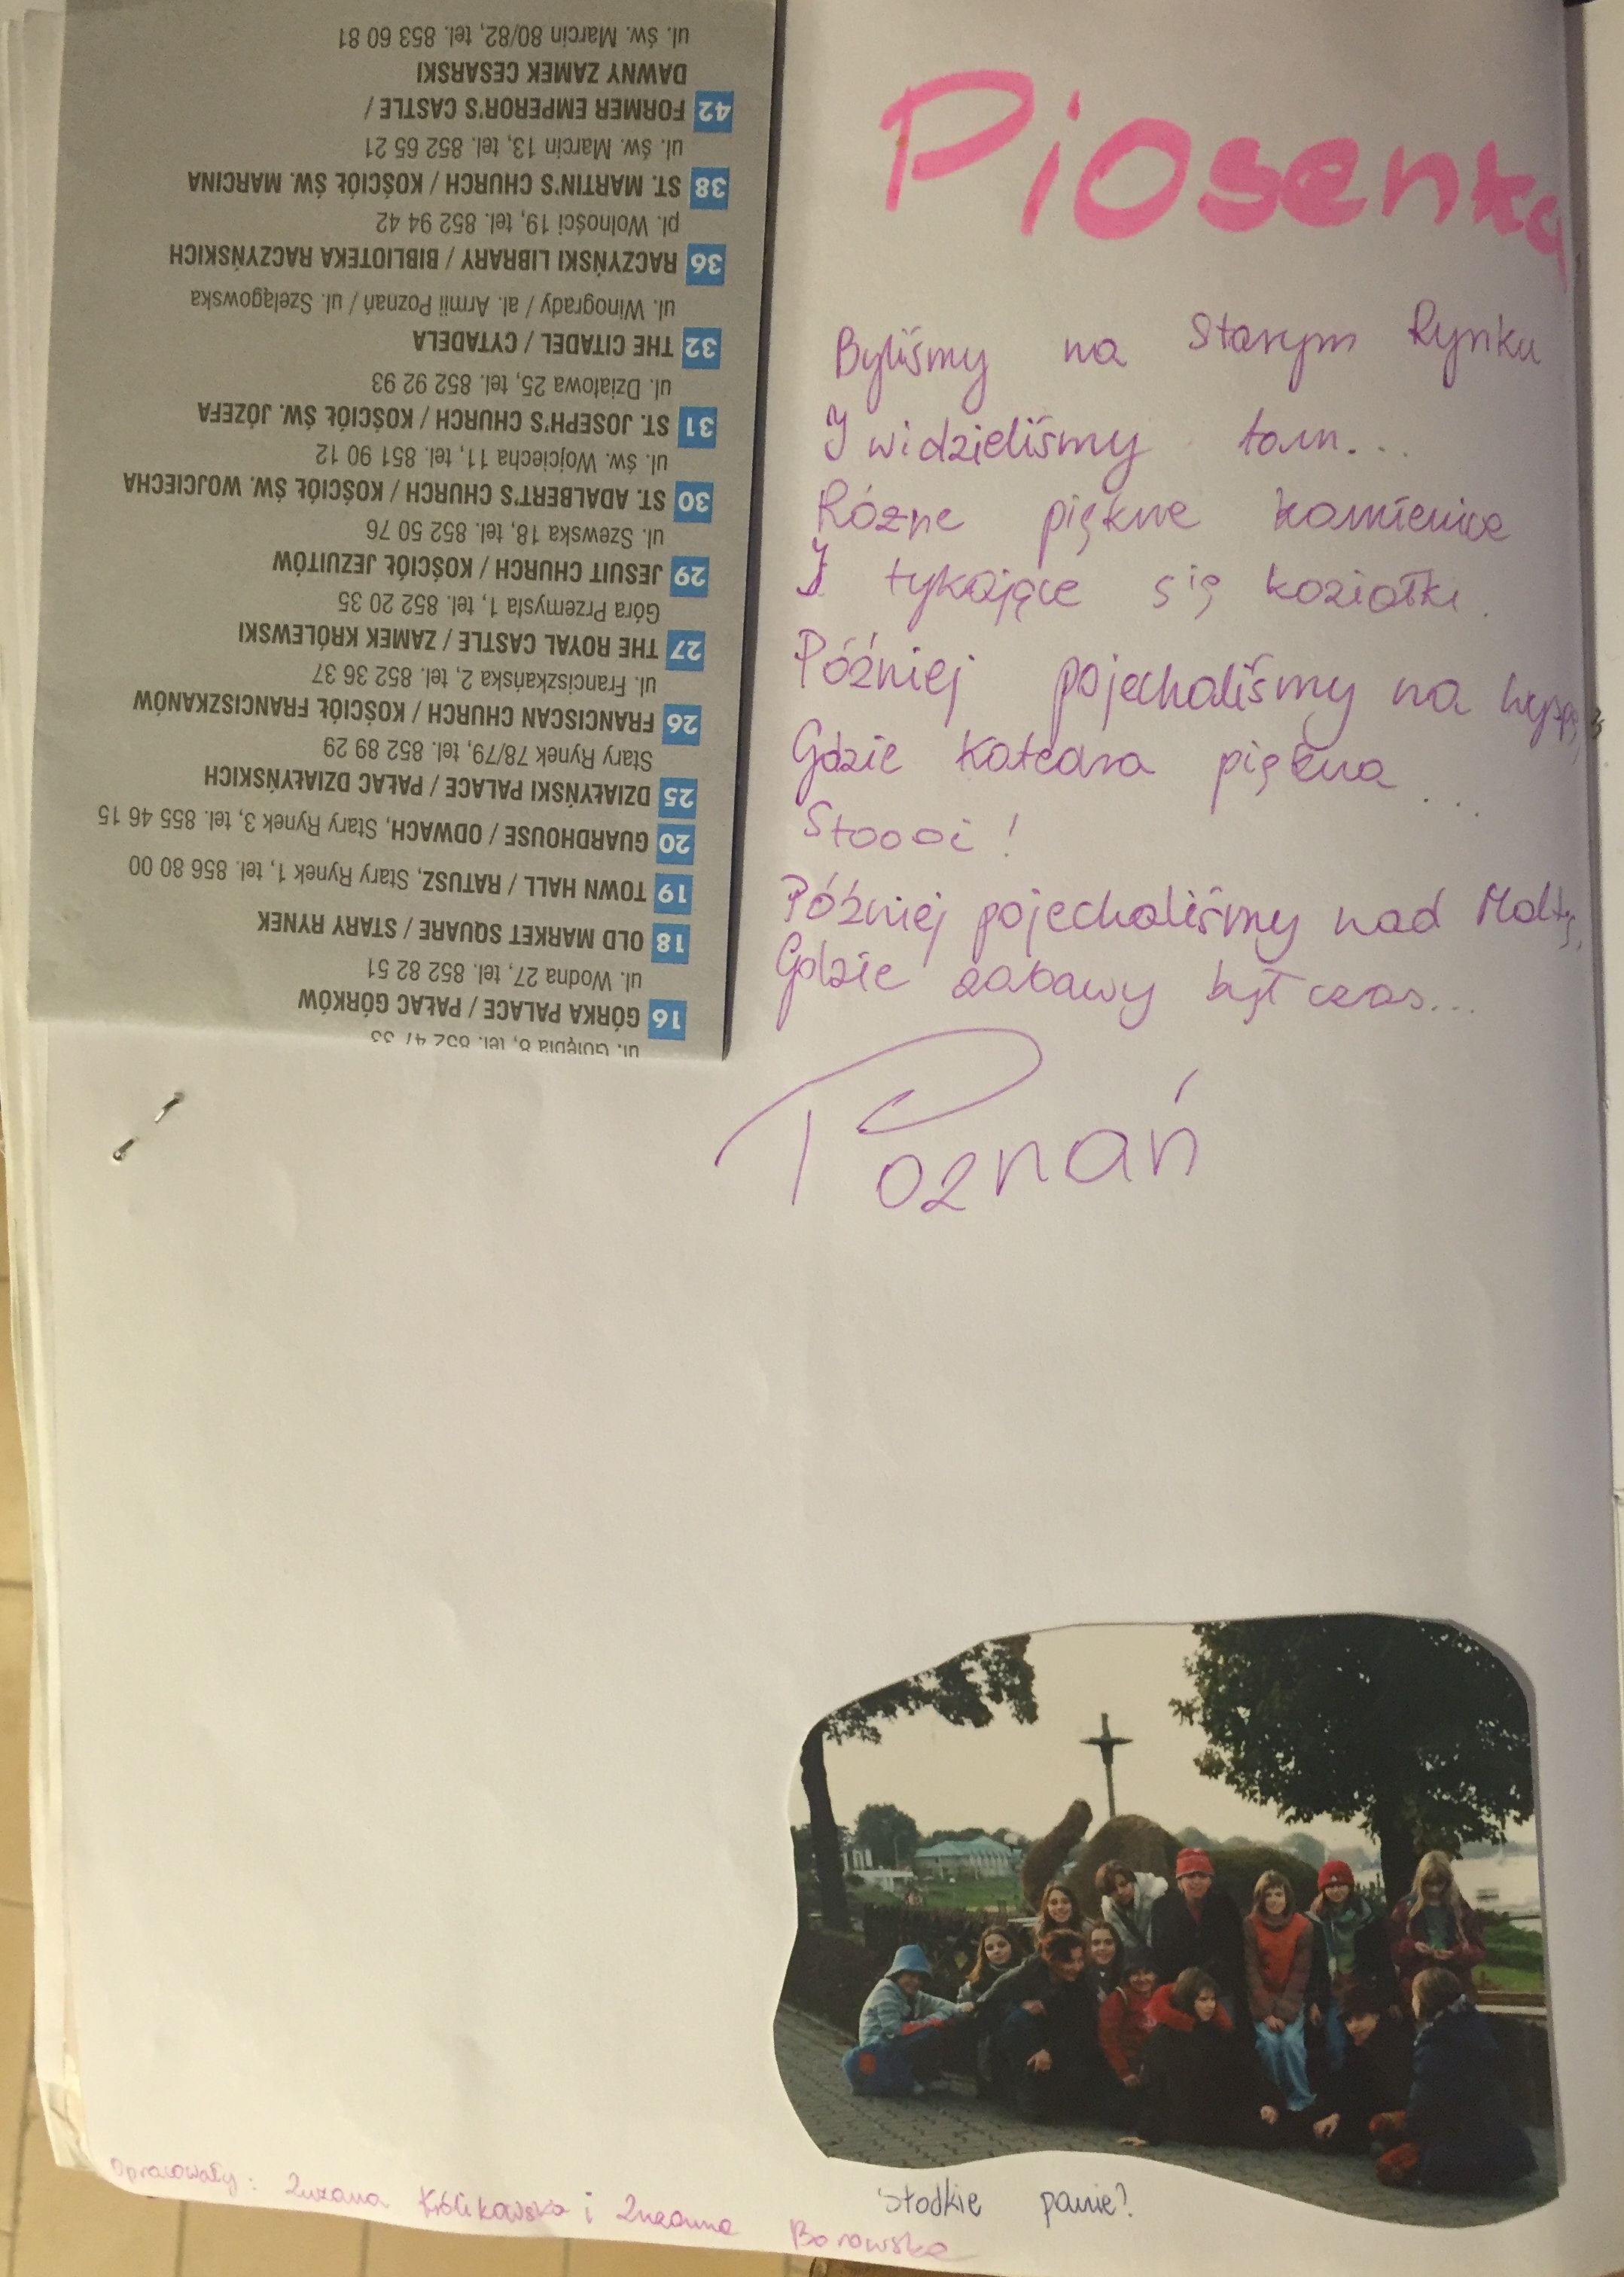 Piosenka
Byliśmy na Starym Rynku
I widzieliśmy tam...
Różne piękne kamienice
I tykające się koziołki.
Później pojechaliśmy na wyspę,
Gdzie Katedra piękna...
Stoooi!
Później pojechaliśmy nad Maltę,
Gdzie zabawy był czas...
Poznań
Słodkie panie?
Opracowały: Zuzana Królikowska i Zuzanna Borowska
16 GÓRKA PALACE / PAŁAC GÓRKÓW
ul. Wodna 27, tel. 852 82 51
18 OLD MARKET SQUARE / STARY RYNEK
19 TOWN HALL / RATUSZ, Stary Rynek 1, tel. 856 80 00
20 GUARDHOUSE / ODWACH, Stary Rynek 3, tel. 855 46 15
25 DZIAŁYŃSKI PALACE / PAŁAC DZIAŁYŃSKICH
Stary Rynek 78/79, tel. 852 89 29
26 FRANCISCAN CHURCH / KOŚCIÓŁ FRANCISZKANÓW
ul. Franciszkańska 2, tel. 852 36 37
27 THE ROYAL CASTLE / ZAMEK KRÓLEWSKI
Góra Przemysła 1, tel. 852 20 35
29 JESUIT CHURCH / KOŚCIÓŁ JEZUITÓW
ul. Szewska 18, tel. 852 50 76
30 ST. ADALBERT'S CHURCH / KOŚCIÓŁ ŚW. WOJCIECHA
ul. św. Wojciecha 11, tel. 851 90 12
31 ST. JOSEPH'S CHURCH / KOŚCIÓŁ ŚW. JÓZEFA
ul. Działowa 25, tel. 852 92 93
32 THE CITADEL / CYTADELA
ul. Winogrady / al. Armii Poznań / ul. Szelągowska
36 RACZYŃSKI LIBRARY / BIBLIOTEKA RACZYŃSKICH
pl. Wolności 19, tel. 852 94 42
38 ST. MARTIN'S CHURCH / KOŚCIÓŁ ŚW. MARCINA
ul. św. Marcin 13, tel. 852 65 21
42 FORMER EMPEROR'S CASTLE /
DAWNY ZAMEK CESARSKI
ul. św. Marcin 80/82, tel. 853 60 81